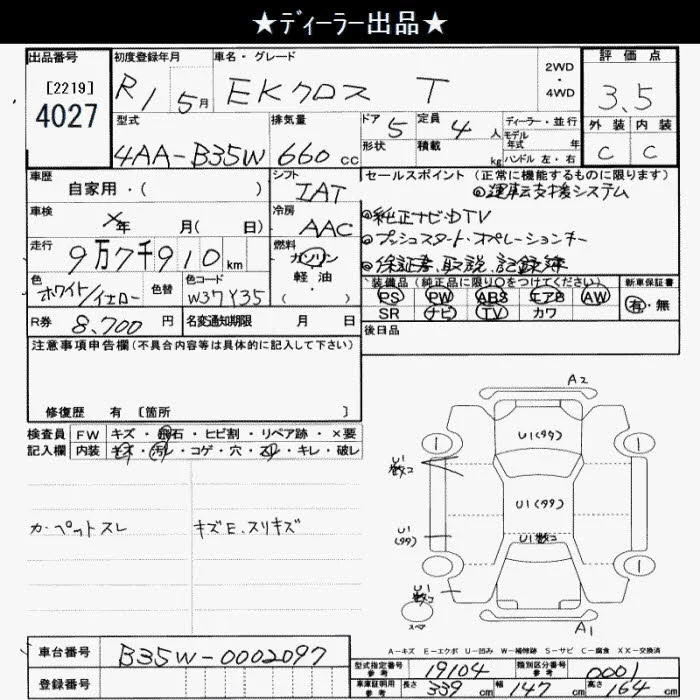 ★ディーラー出品★
出品番号 初度登録年月 車名・グレード 2WD・4WD 評価点
[2219]
4027 R1 5月 EKクロス T 3.5
型式 排気量 ドア 5 定員 4人 ディーラー・並行 外装 内装
モデル年式 年
4AA-B35W 660cc 形状 積載 kg ハンドル 左・右 C C
車歴 シフト セールスポイント (正常に機能するものに限ります)
自家用・( ) IAT ◎運転支援システム
車検 冷房 ◎純正ナビ・DTV
×年 月( 日) AAC ◎プッシュスタート・オペレーションキー
走行 燃料 ◎保証書、取説、記録簿
9万7千910km ガソリン
軽・油
( )
色 ホワイト/イエロー 色替 色コード W37Y35
装備品(純正品に限り○をつけてください) 新車保証書
PS PW ABS エアB AW 有・無
SR ナビ TV カワ
R券 8,700円 名変通知期限 月 日
後日品
注意事項申告欄(不具合内容等は具体的に記入して下さい)
修復歴 有 [箇所 ]
検査員 FW キズ・飛石・ヒビ割・リペア跡・×要
記入欄 内装 キズ・汚レ・コゲ・穴・スレ・キレ・破レ
カーペットスレ キズE、スリキズ
A2
1 U1(99) 1
U1
数コ
U1(99)
U1
(99)
U1数コ
1 1
U1
数コ
スペア
A1
A-キズ E-エクボ U-凹み W-補修跡 S-サビ C-腐食 XX-交換済
車台番号 B35W-0002097
型式指定番号 参考 19104 類別区分番号 参考 0001
登録番号
車庫証明用 参考 長さ 339cm 幅 147cm 高さ 164cm